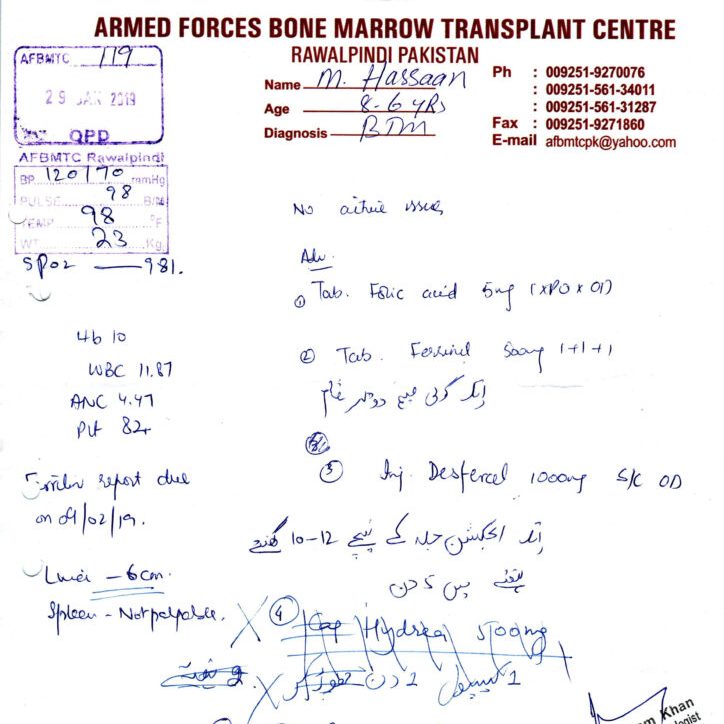 ARMED FORCES BONE MARROW TRANSPLANT CENTRE
RAWALPINDI PAKISTAN
AFBMTC 119
29 JAN 2019
OPD
Name M. Hassaan
Age 8-6 yrs
Diagnosis BTM
Ph : 009251-9270076
: 009251-561-34011
: 009251-561-31287
Fax : 009251-9271860
E-mail afbmtcpk@yahoo.com
AFBMTC Rawalpindi
BP 120/70 mmHg
PULSE 98 B/M
TEMP 98 °F
WT 23 Kg
SPO2 — 98%.
No active issues
Adv.
① Tab. Folic acid 5mg (1xPOxOD)
Hb 10
WBC 11.87
ANC 4.47
Plt 82
② Tab. 500mg 1+1+1
ایک گولی صبح دوپہر شام
③ Inj. Desferal 1000mg S/C OD
Ferritin report due
on 09/02/19.
ایک انجکشن جلد کے نیچے 10-12 گھنٹے
ہفتے میں 5 دن
Liver - 6cm.
Spleen - Not palpable.
④ Cap Hydrea 500mg
1 کیپسول 2 دن
Khan